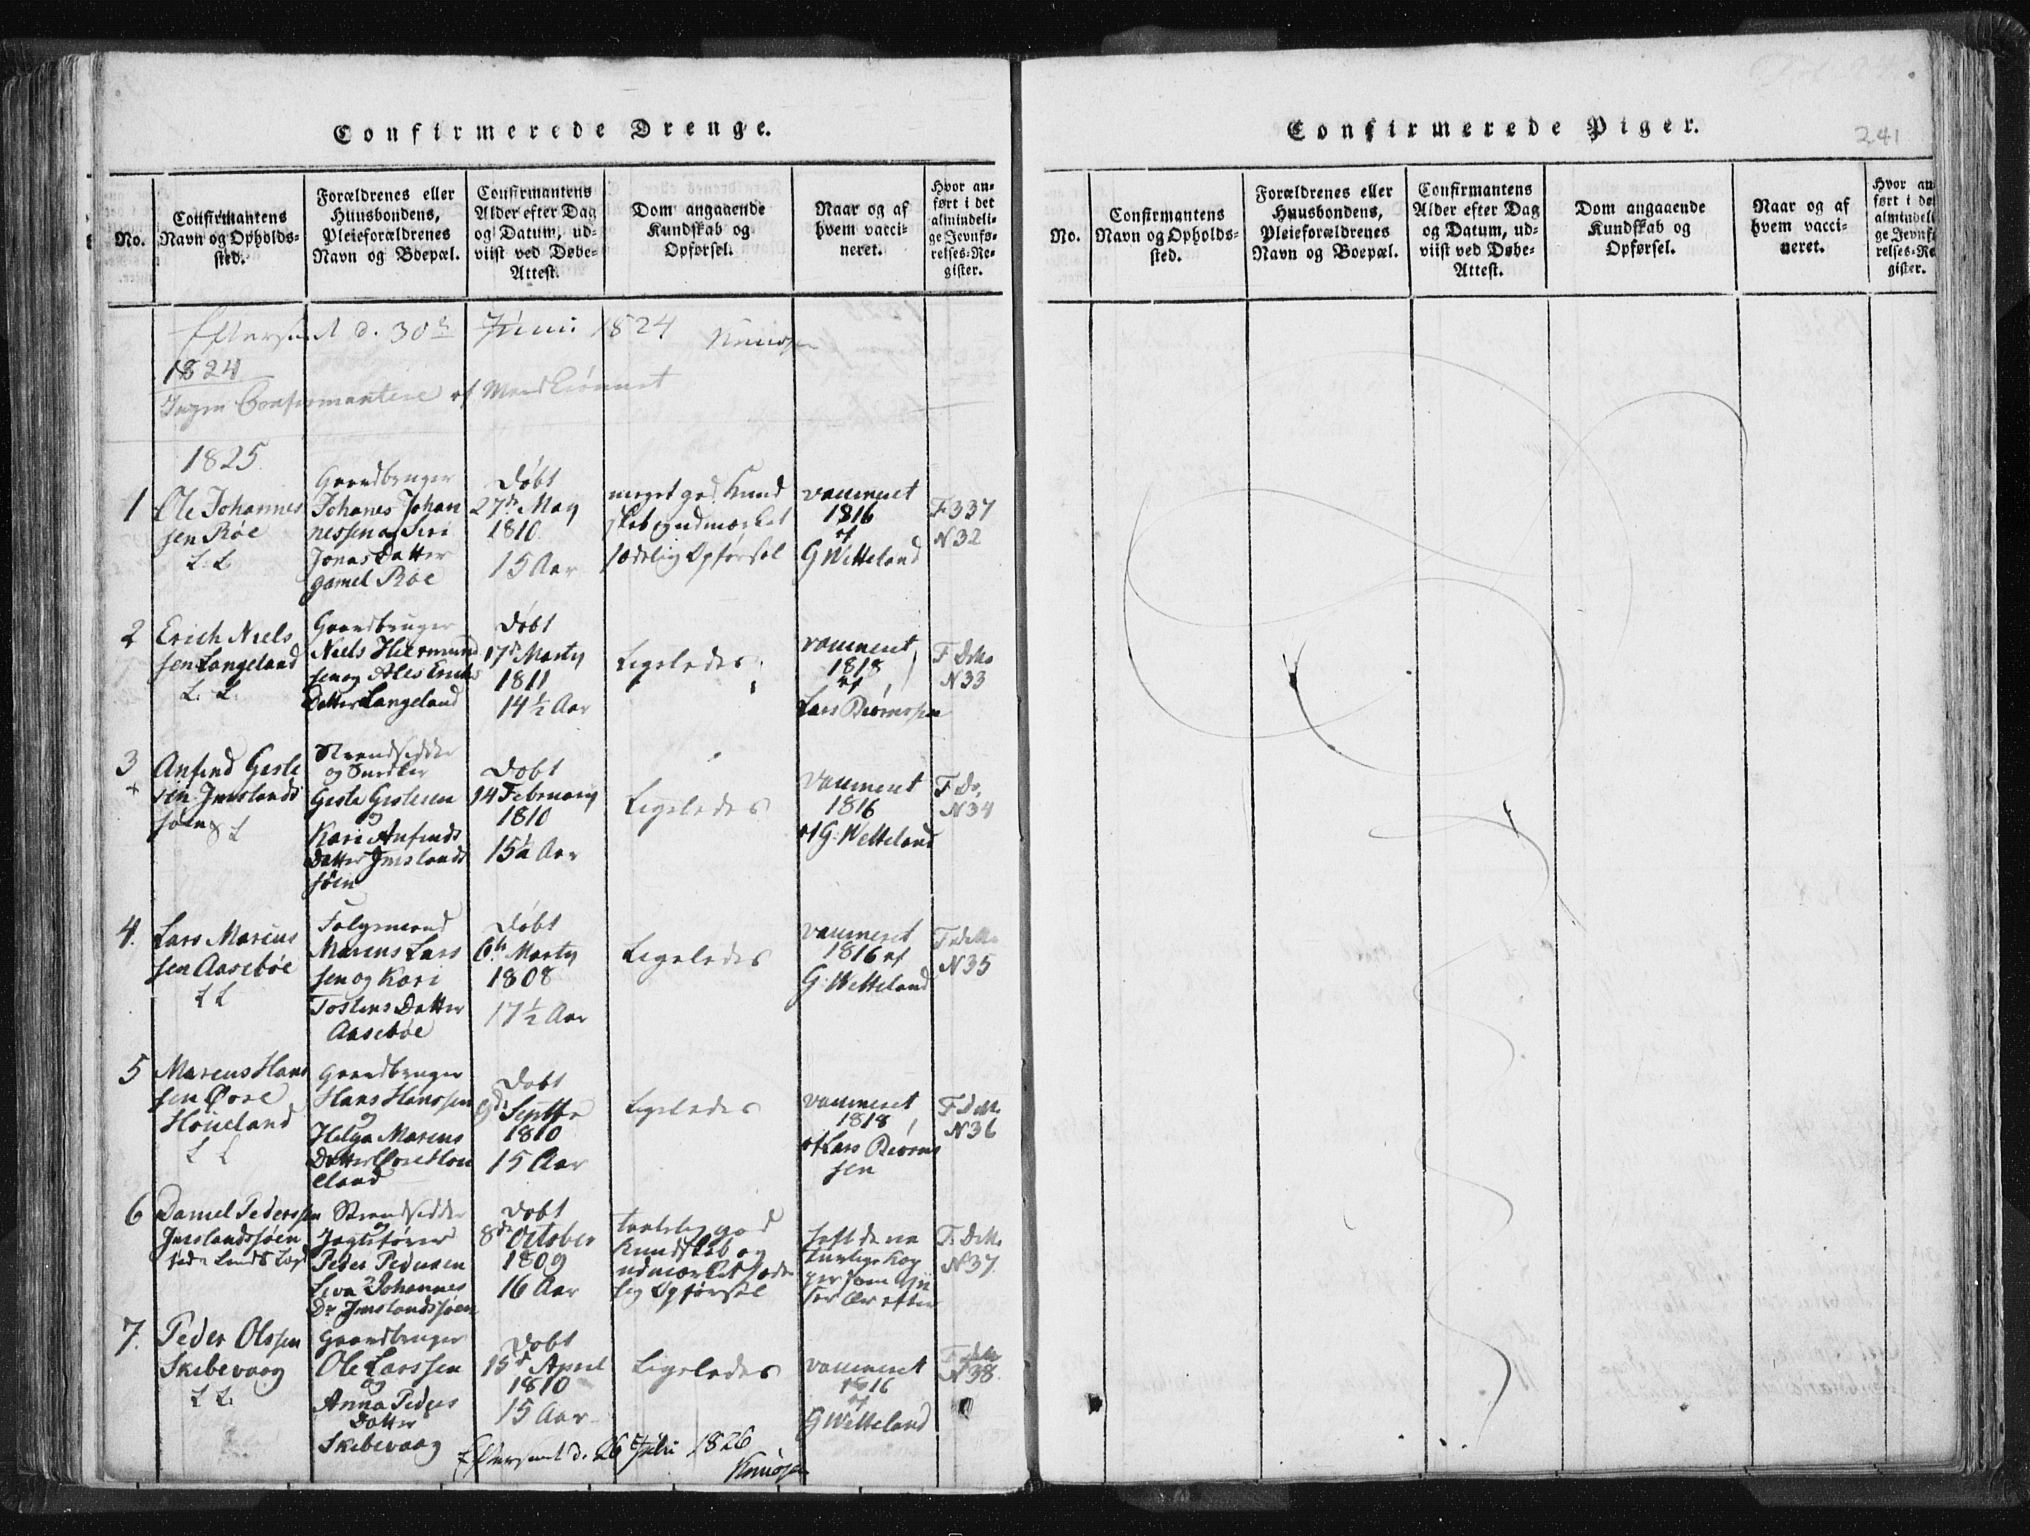 Confirmerede Drenge.
No.
Confirmantens
Navn og Opholds-
sted.
Forældrenes eller
Huusbondens,
Pleieforældrenes
Navn og Boepæl.
Confirmantens
Alder efter Dag
og Datum, ud-
viist ved Døbe-
Attest.
Dom angaaende
Kundskab og
Opførsel.
Naar og af
hvem vacci-
neret.
Hvor an-
ført i det
almindeli-
ge Jevnfø-
relses-Re-
gister.
Efterseet d. 30te Juni 1824
1824
Ingen Confirmantere af Mandkiønnet
1825.
1
Ole Johannes
sen Røe
L. L.
Gaardbruger
Johanes Johan
nessen og Siri
Jonas Datter
gamel Røe
Døbt
27de May
1810
15 Aar
meget god Kund
skab og udmærket
sædelig Opførsel
vaccineret
1816
af
G Wetteland
F 337
N 32
2
Erich Niels
sen Langeland
L. L.
Gaardbruger
Niels Hiermund
sen og Ales Erichs
Datter Langeland
Døbt
17de Marty
1811
14½ Aar
Ligeledes
vaccineret
1818
af
Lars Biørnsen
F. D No
N 33
3
Anfind Geste
sen Imslands
søen
L
Strandsidder
og Snedker
Geste Gestesen
og
Kari Anfinds
Datter Imslands
søen
Døbt
14 February
1810
15½ Aar
Ligeledes
vaccineret
1816
af G. Wetteland
F. Do.
N 34
4.
Lars Marcus
sen Aasebøe
L L
Følgemand
Marcus Lars
sen og Kari
Tostens Datter
Aasebøe
Døbt
6te Marty
1808
17½ Aar
Ligeledes
vaccineret
1816 af
G. Wetteland
N 35
5
Marcus Hans
sen Øvre
Høueland
L L
Gaardbruger
Hans Hanssen
og
Helga Marcus
Datter Øvre Høu
eland
Døbt
Septbr
1810
15 Aar
Ligeledes
vaccineret
1818
af Lars Biørns
sen
N 36
6
Daniel Pederssen
Imslandssøen
Strandsidder
og
Jagtefører
Peder Pedersen
Johannes
Dr Imslandssøen
Døbt
8de October
1809
16 Aar
taalelig god
Kundskab og
udmærket sæde
lig Opførsel
haft de na
turlige Kop
per som
efter
N 37
7.
Peder Olssen
Skibevaag
L L.
Gaardbruger
Ole Larssen
og
Anna Peders
Datter
Skibevaag
Døbt
15de April
1810
15 Aar
Ligeledes
vaccineret
1816
af
G Wetteland
N 38
Efterseet d. 26 Juli 1826
Confirmerede Piger.
241
No.
Confirmantens
Navn og Opholds-
sted.
Forældrenes eller
Huusbondens,
Pleieforældrenes
Navn og Boepæl.
Confirmantens
Alder efter Dag
og Datum, ud-
viist ved Døbe-
Attest.
Dom angaaende
Kundskab og
Opførsel.
Naar og af
hvem vacci-
neret.
Hvor an
ført i de
almindeli
ge Jevnf
relses-Re
gister.